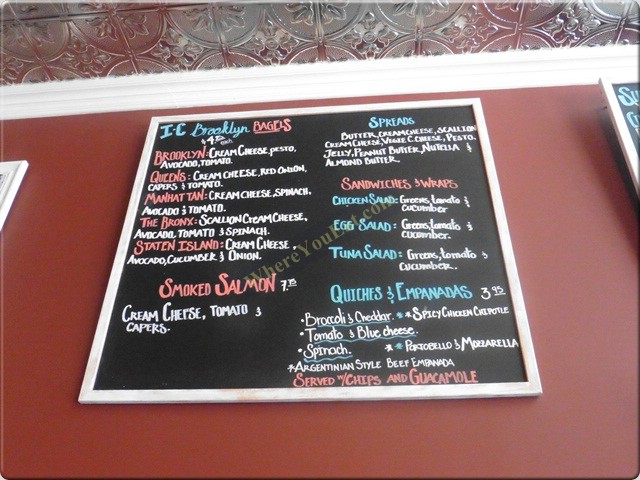 I·C Brooklyn BAGELS
BROOKLYN: CREAM CHEESE, PESTO,
AVOCADO, TOMATO.
QUEENS: CREAM CHEESE, RED ONION,
CAPERS & TOMATO.
MANHATTAN: CREAM CHEESE, SPINACH,
AVOCADO & TOMATO.
THE BRONX: SCALLION CREAM CHEESE,
AVOCADO, TOMATO & SPINACH.
STATEN ISLAND: CREAM CHEESE,
AVOCADO, CUCUMBER & ONION.
SMOKED SALMON
CREAM CHEESE, TOMATO &
CAPERS.
SPREADS
BUTTER, CREAM CHEESE, SCALLION
CREAM CHEESE, VEGIE C. CHEESE, PESTO.
JELLY, PEANUT BUTTER, NUTELLA &
ALMOND BUTTER.
SANDWICHES & WRAPS
CHICKEN SALAD: Greens, tomato &
cucumber
EGG SALAD: Greens, tomato &
cucumber.
TUNA SALAD: Greens, tomato &
cucumber.
QUICHES & EMPANADAS 3.95
·Broccoli & Cheddar. ** SPICY CHICKEN CHIPOTLE
·Tomato & Blue cheese.
·Spinach. ** PORTOBELLO & MOZZARELLA
*ARGENTINIAN STYLE BEEF EMPANADA
SERVED W/CHIPS AND GUACAMOLE
WhereYouEat.com